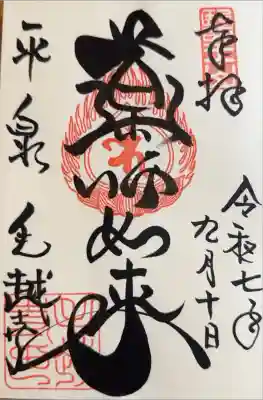 奉拝
令和七年
九月十日
薬師如来
平泉 毛越寺